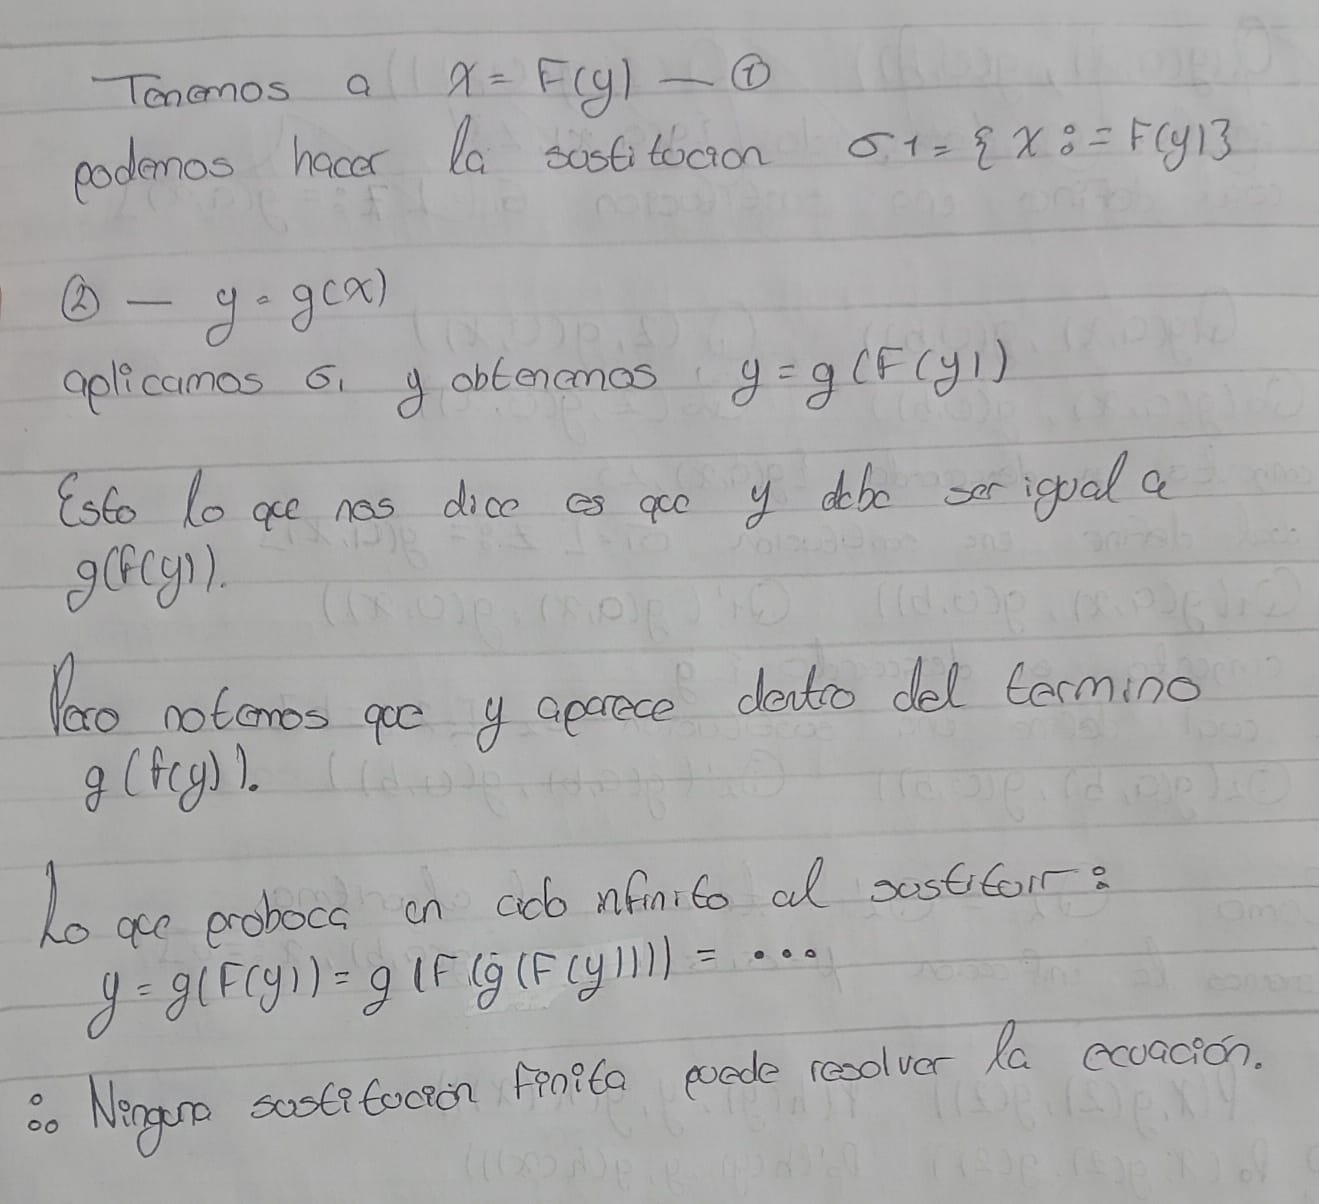 Tenemos a x = F(y) — ①
podemos hacer la sustitucion σ1 = { x := F(y)}
② — y = g(x)
aplicamos σ1 y obtenemos y = g(F(y))
Esto lo que nos dice es que y debe ser igual a
g(f(y)).
Pero notemos que y aparece dentro del termino
g(f(y)).
Lo que proboca un ciclo infinito al sustituir:
y = g(F(y)) = g(F(g(F(y)))) = ...
∴ Ninguna sustitución finita puede resolver la ecuación.